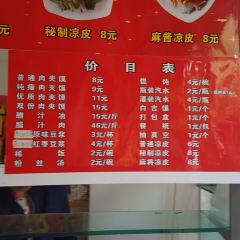 8元
秘制凉皮 8元
麻酱凉皮 8元
价目表
普通肉夹馍 8元
纯瘦肉夹馍 9元
优质肉夹馍 11元
双份肉夹馍 15元
腊汁油 15元/斤
腊汁肉 46元/斤
原味豆浆 3元/杯
红枣豆浆 4元/杯
稀饭 2元/碗
粉丝汤 2元/碗
馄饨 4元/碗
瓶装汽水 2元/瓶
灌装汽水 4元/瓶
打包盒 1元/个
餐纸 1元/包
抽真空 1元/个
秘制凉皮 8元
麻将凉皮 8元